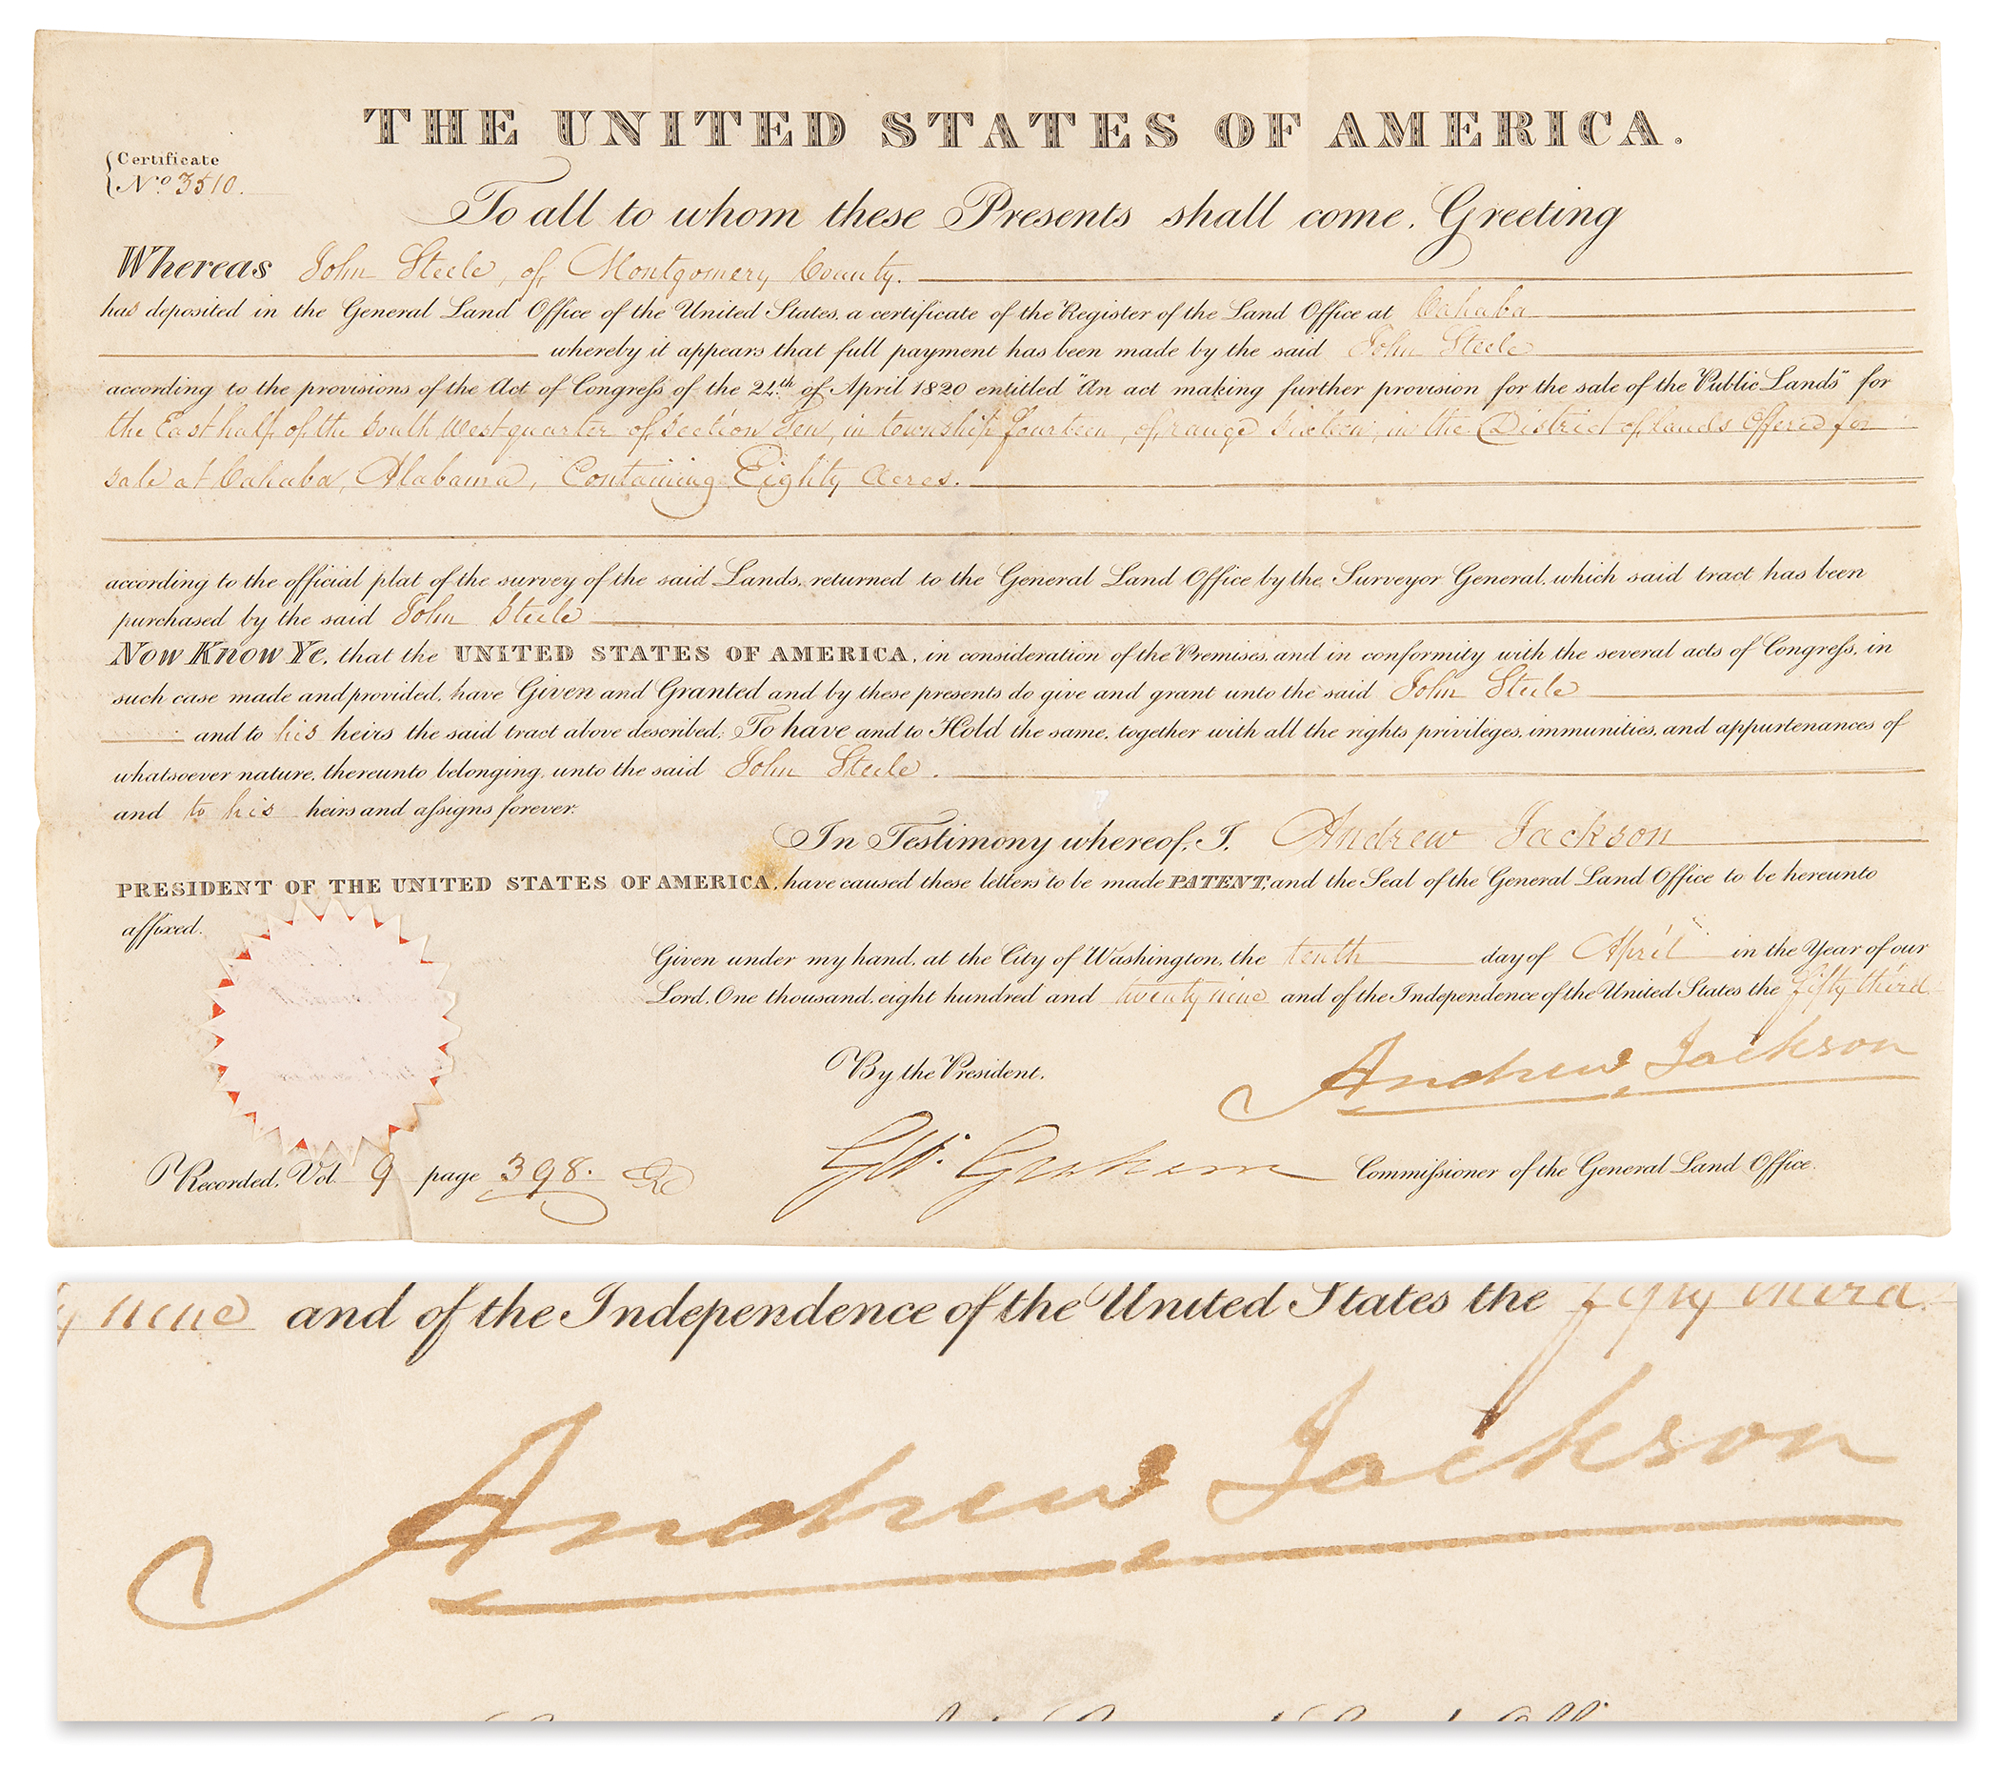 THE UNITED STATES OF AMERICA.
Certificate
No. 3510.
To all to whom these Presents shall come, Greeting
Whereas John Steele, of Montgomery County.
has deposited in the General Land Office of the United States, a certificate of the Register of the Land Office at Cahaba
whereby it appears that full payment has been made by the said John Steele
according to the provisions of the Act of Congress of the 24th. of April 1820 entitled "An act making further provision for the sale of the Public Lands" for
the East half, of the South West quarter of Section Ten, in township fourteen, of range Sixteen, in the District of lands Offered for
sale at Cahaba, Alabama, Containing Eighty Acres.
according to the official plat of the survey of the said Lands, returned to the General Land Office by the Surveyor General, which said tract has been
purchased by the said John Steele
Now Know Ye, that the UNITED STATES OF AMERICA, in consideration of the Premises, and in conformity with the several acts of Congress, in
such case made and provided, have Given and Granted and by these presents do give and grant unto the said John Steele
and to his heirs the said tract above described: To have and to Hold the same, together with all the rights privileges, immunities, and appurtenances of
whatsoever nature, thereunto belonging, unto the said John Steele.
and to his heirs and assigns forever.
In Testimony whereof, I, Andrew Jackson
PRESIDENT OF THE UNITED STATES OF AMERICA, have caused these letters to be made PATENT, and the Seal of the General Land Office to be hereunto
affixed.
Given under my hand, at the City of Washington, the tenth day of April in the Year of our
Lord, One thousand, eight hundred and twenty nine and of the Independence of the United States the fifty third
Andrew Jackson
By the President,
GW. Graham Commissioner of the General Land Office.
Recorded, Vol. 9 page 398.
nine and of the Independence of the United States the fifty third
Andrew Jackson